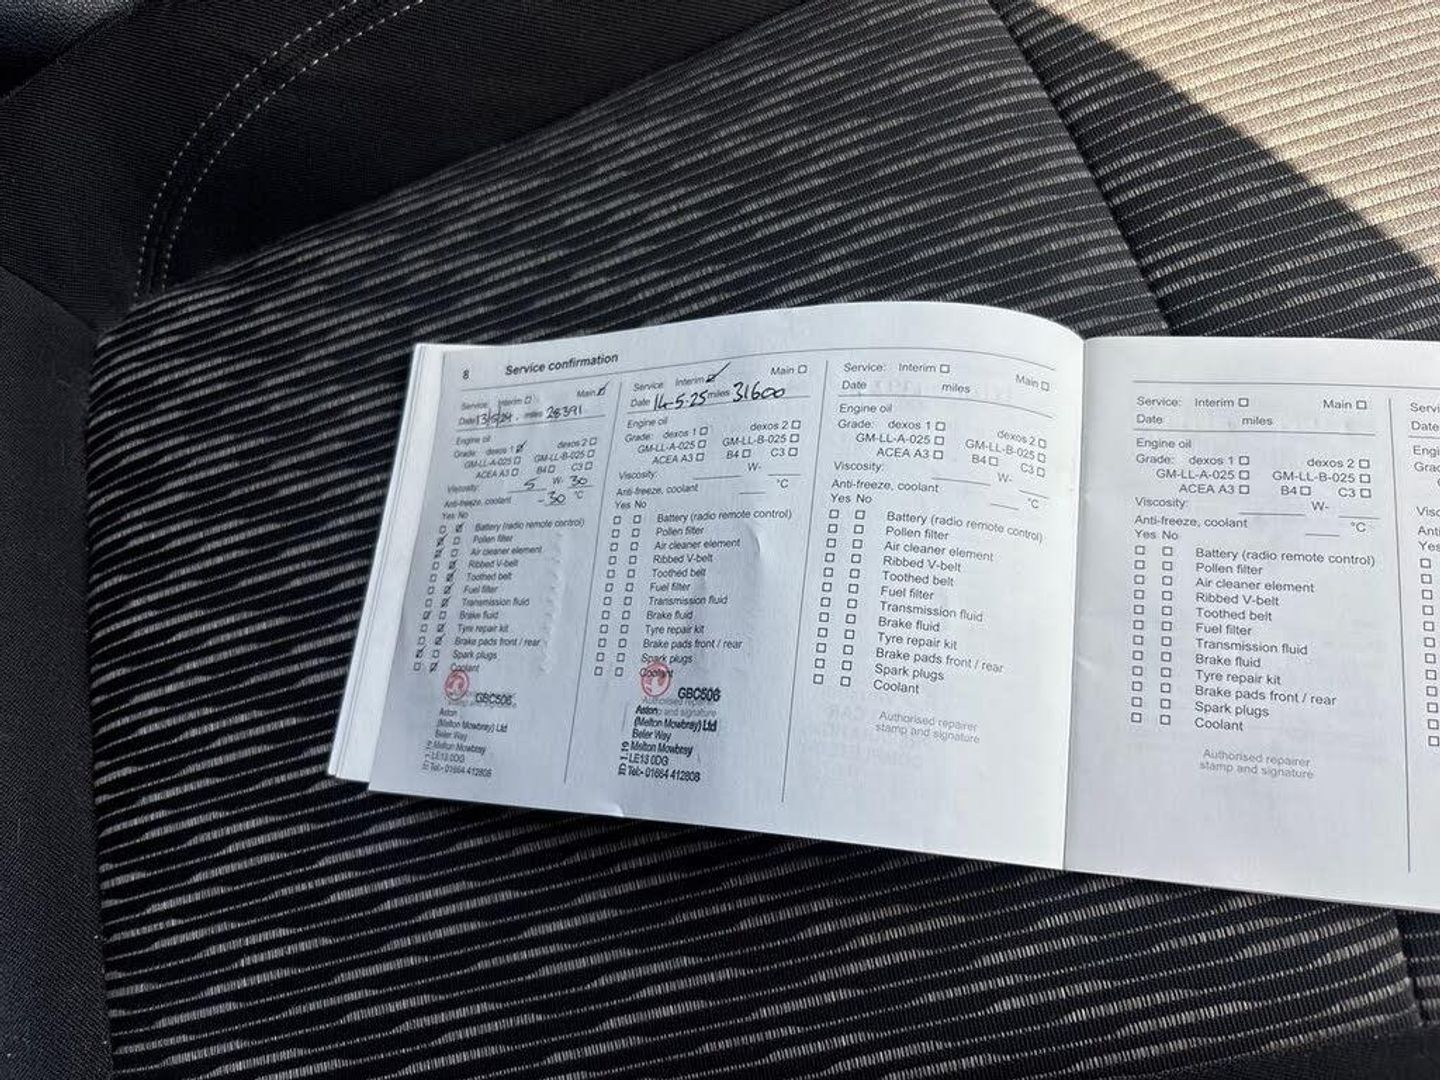 8 Service confirmation
Service: Interim Main
Date 13/5/24 miles 28391
Engine oil
Grade: dexos 1 dexos 2
GM-LL-A-025 GM-LL-B-025
ACEA A3 B4 C3
Viscosity: 5 W- 30
Anti-freeze, coolant -30 °C
Yes No
Battery (radio remote control)
Pollen filter
Air cleaner element
Ribbed V-belt
Toothed belt
Fuel filter
Transmission fluid
Brake fluid
Tyre repair kit
Brake pads front / rear
Spark plugs
Coolant
GBC506
Aston
(Melton Mowbray) Ltd
Beler Way
Melton Mowbray
LE13 0DG
Tel:- 01664 412808
Service Interim Main
Date 14-5-25 miles 31600
Engine oil
Grade: dexos 1 dexos 2
GM-LL-A-025 GM-LL-B-025
ACEA A3 B4 C3
Viscosity: W-
Anti-freeze, coolant °C
Yes No
Battery (radio remote control)
Pollen filter
Air cleaner element
Ribbed V-belt
Toothed belt
Fuel filter
Transmission fluid
Brake fluid
Tyre repair kit
Brake pads front / rear
Spark plugs
Coolant
GBC506
Authorised repairer
Aston
stamp and signature
(Melton Mowbray) Ltd
Beler Way
Melton Mowbray
LE13 0DG
Tel:- 01664 412808
Service: Interim Main
Date miles
Engine oil
Grade: dexos 1 dexos 2
GM-LL-A-025 GM-LL-B-025
ACEA A3 B4 C3
Viscosity: W-
Anti-freeze, coolant °C
Yes No
Battery (radio remote control)
Pollen filter
Air cleaner element
Ribbed V-belt
Toothed belt
Fuel filter
Transmission fluid
Brake fluid
Tyre repair kit
Brake pads front / rear
Spark plugs
Coolant
Authorised repairer
stamp and signature
Service: Interim Main
Date miles
Engine oil
Grade: dexos 1 dexos 2
GM-LL-A-025 GM-LL-B-025
ACEA A3 B4 C3
Viscosity: W-
Anti-freeze, coolant °C
Yes No
Battery (radio remote control)
Pollen filter
Air cleaner element
Ribbed V-belt
Toothed belt
Fuel filter
Transmission fluid
Brake fluid
Tyre repair kit
Brake pads front / rear
Spark plugs
Coolant
Authorised repairer
stamp and signature
Date
Yes